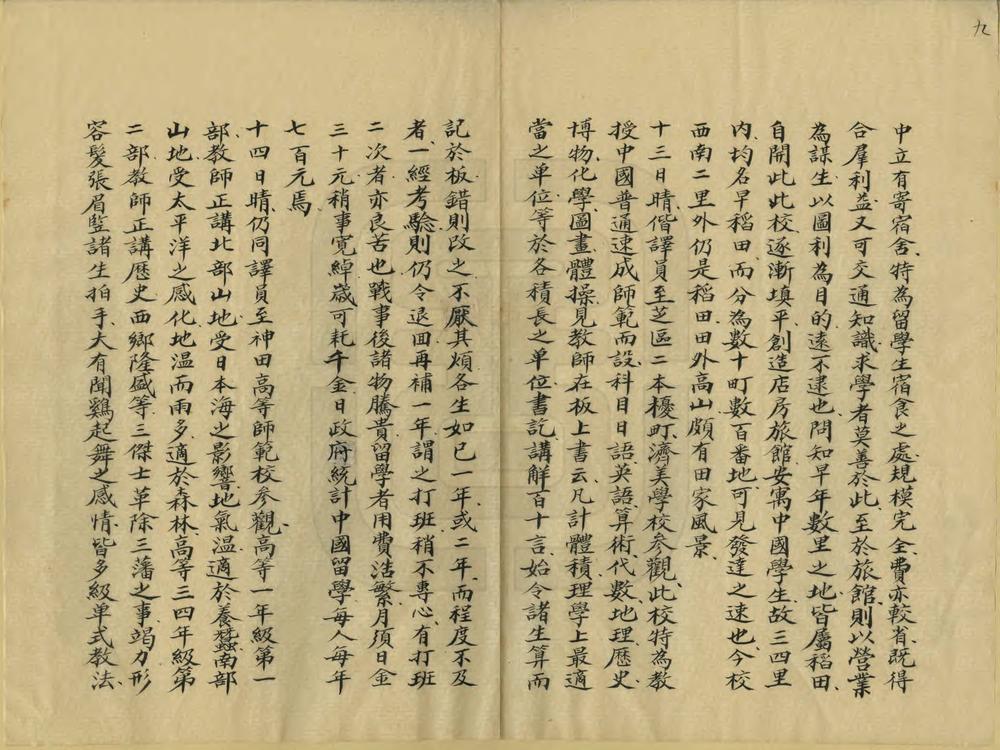 九
中立有寄宿舍、特為留學生宿食之處、規模完全、費亦較省、既得
合羣利益、又可交通知識、求學者莫善於此、至於旅館、則以營業
為謀生、以圖利為目的、遠不逮也、問知早年數里之地、皆屬稻田、
自開此此校逐漸填平、創造店房旅館、安寓中國學生、故三四里
內、均名早稻田、而分為數十町數百番地、可見發達之速也、今校
西南二里外、仍是稻田、田外高山、頗有田家風景、
十三日晴、偕譯員至芝區二本榎町、濟美學校參觀、此校特為教
授中國普通速成師範而設、科目日語、英語、算術、代數、地理、歷史、
博物、化學、圖畫、體操、見教師在板上書云、凡計體積、理學上最適
當之單位、等於各積長之單位、書訖、講解百十言、始令諸生算而
記於板、錯則改之、不厭其煩、各生如已一年、或二年、而程度不及
者、一經考驗、則仍令退回再補一年、謂之打班、稍不專心、有打班
二次者、亦良苦也、戰事後諸物騰貴、留學者用費浩繁、月須日金
三十元、稍事寬綽、歲可耗千金、日政府統計中國留學每人每年
七百元焉、
十四日晴、仍同譯員至神田高等師範校參觀、高等一年級第一
部、教師正講北部山地、受日本海之影響、地氣溫、適於養蠶、南部
山地、受太平洋之感化、地溫而雨多、適於森林、高等三四年級第
二部、教師正講歷史、西鄉隆盛等三傑士革除三藩之事、竭力形
容、髮張眉豎、諸生拍手、大有聞鷄起舞之感情、皆多級單式教法、